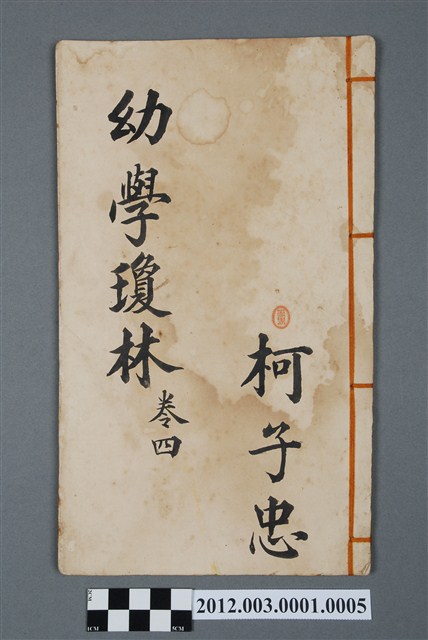 柯子忠
幼學瓊林
卷四
2CM
1CM
5CM
2012.003.0001.0005